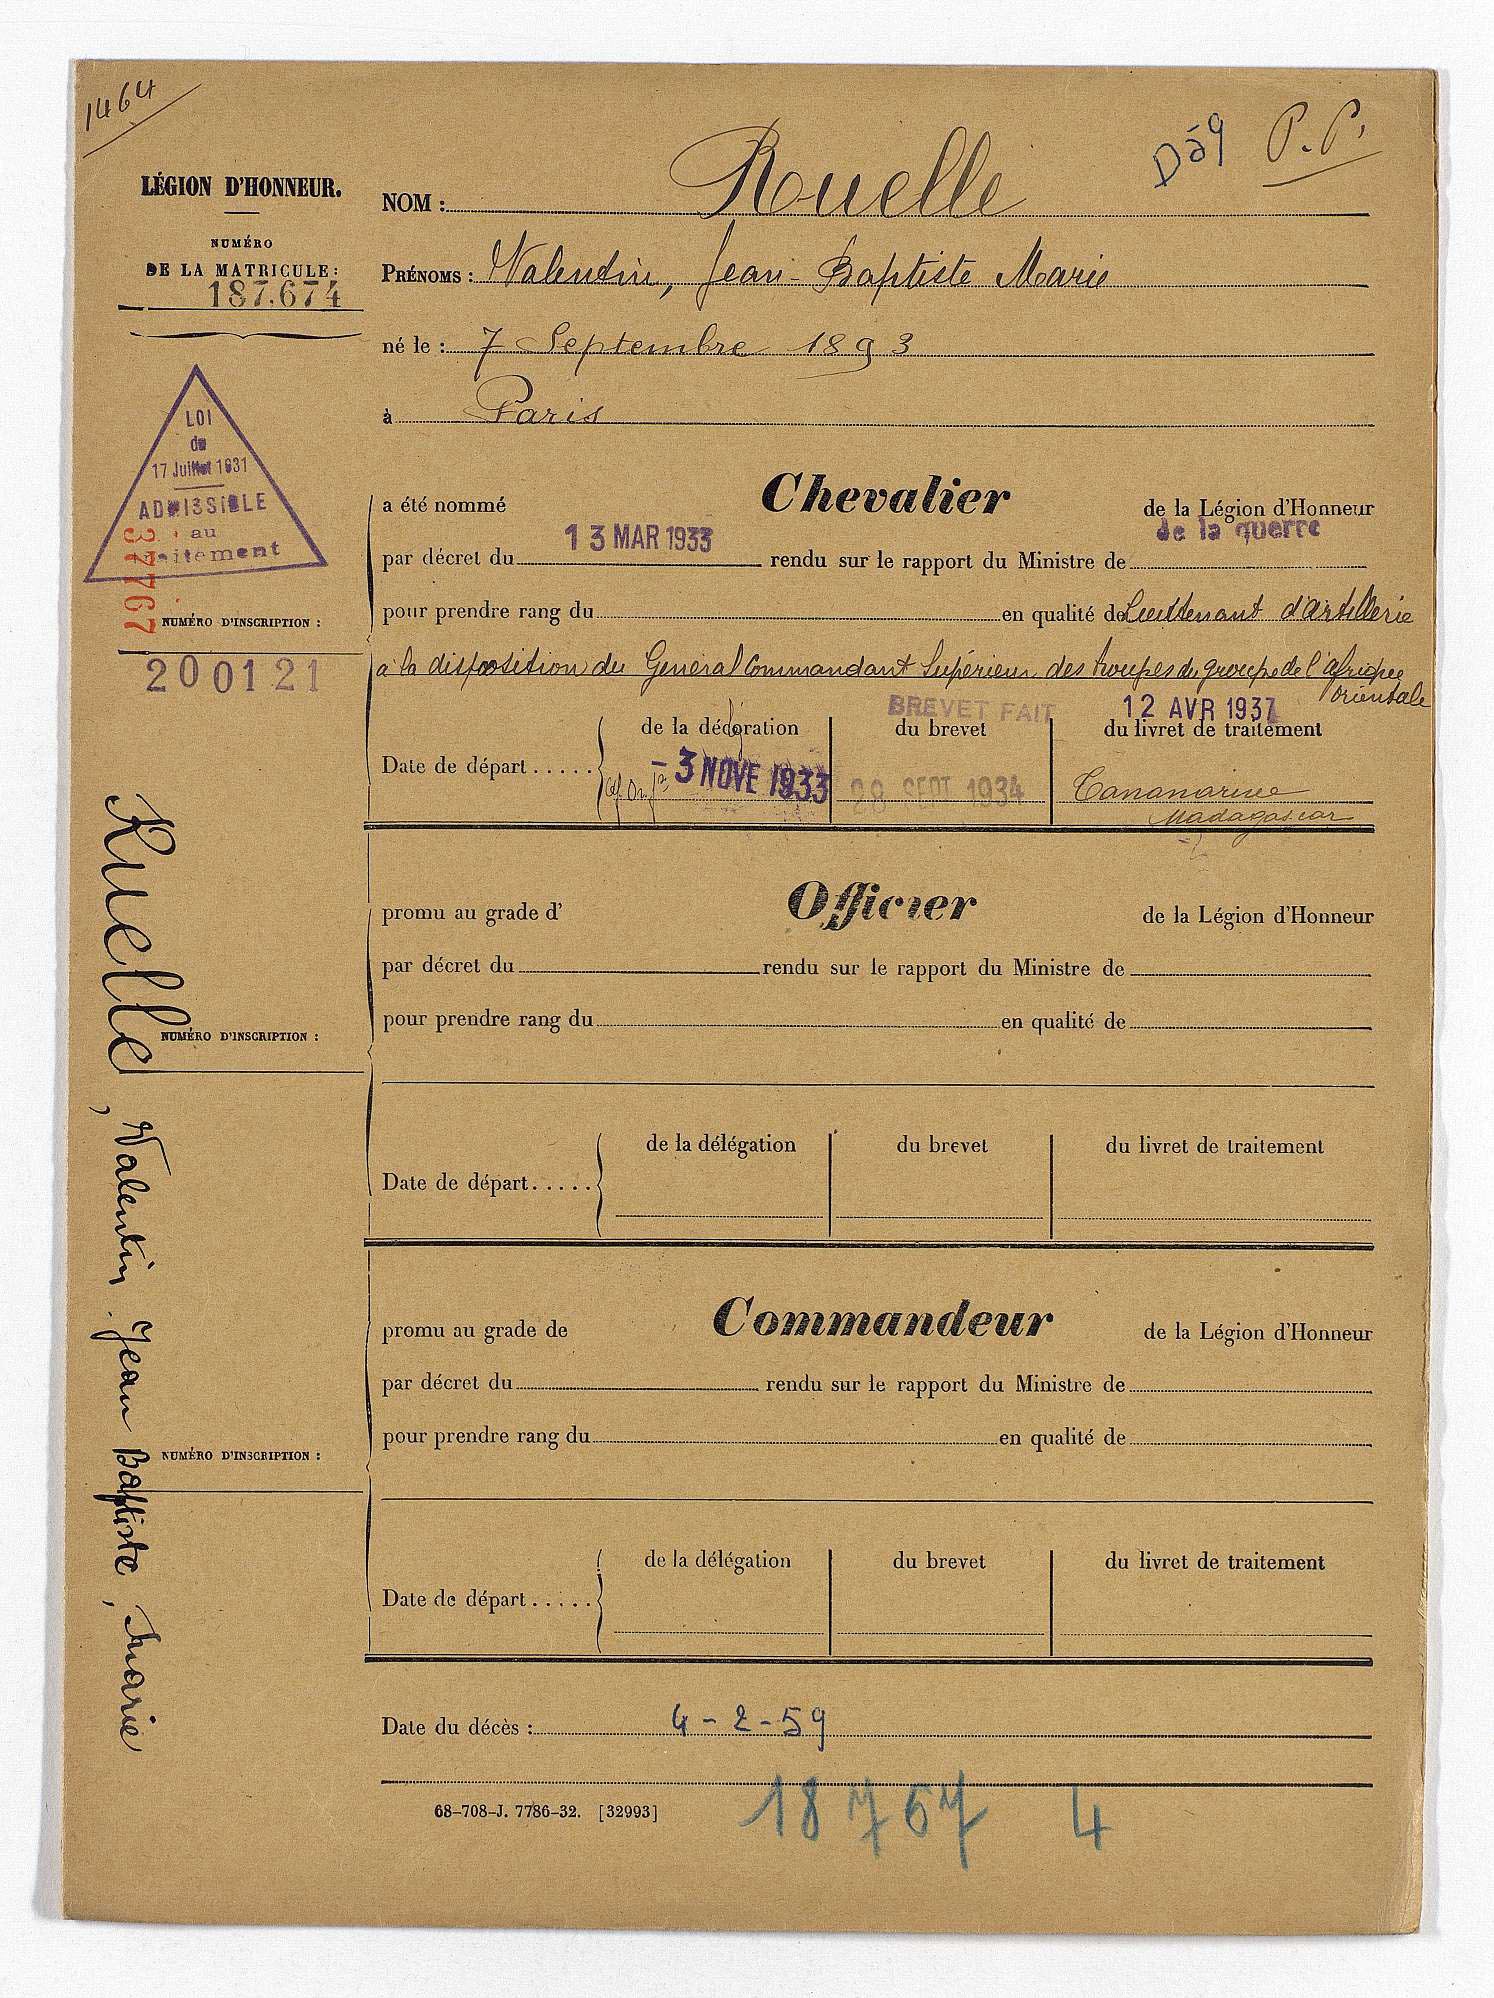 1464
Dág P.P.
LÉGION D'HONNEUR.
NUMÉRO
DE LA MATRICULE:
187.674
NOM : Rouelle
PRÉNOMS : Valentin, Jean-Baptiste Marie
né le : 7 Septembre 1893
à Paris
LOI
du
17 Juillet 1931
ADMISSIBLE
au
traitement
37767
NUMÉRO D'INSCRIPTION :
200121
a été nommé Chevalier de la Légion d'Honneur
par décret du 13 MAR 1933 rendu sur le rapport du Ministre de de la guerre
pour prendre rang du en qualité de Lieutenant d'artillerie
à la disposition du Général Commandant Supérieur des troupes du groupe de l'Afrique
Orientale
BREVET FAIT 12 AVR 1937
de la décoration du brevet du livret de traitement
Date de départ .....
- 3 NOVE 1933 28 SEPT 1934 Tananarive
Madagascar
promu au grade d' Officier de la Légion d'Honneur
par décret du rendu sur le rapport du Ministre de
pour prendre rang du en qualité de
NUMÉRO D'INSCRIPTION :
de la délégation du brevet du livret de traitement
Date de départ .....
promu au grade de Commandeur de la Légion d'Honneur
par décret du rendu sur le rapport du Ministre de
pour prendre rang du en qualité de
NUMÉRO D'INSCRIPTION :
de la délégation du brevet du livret de traitement
Date de départ .....
Date du décès : 4-2-59
68-708-J. 7786-32. [32993]
18767 4
Ruelle, Valentin Jean Baptiste, Marie